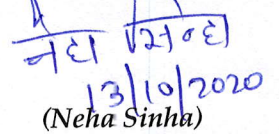 नेहा सिन्हा
13/10/2020
(Neha Sinha)